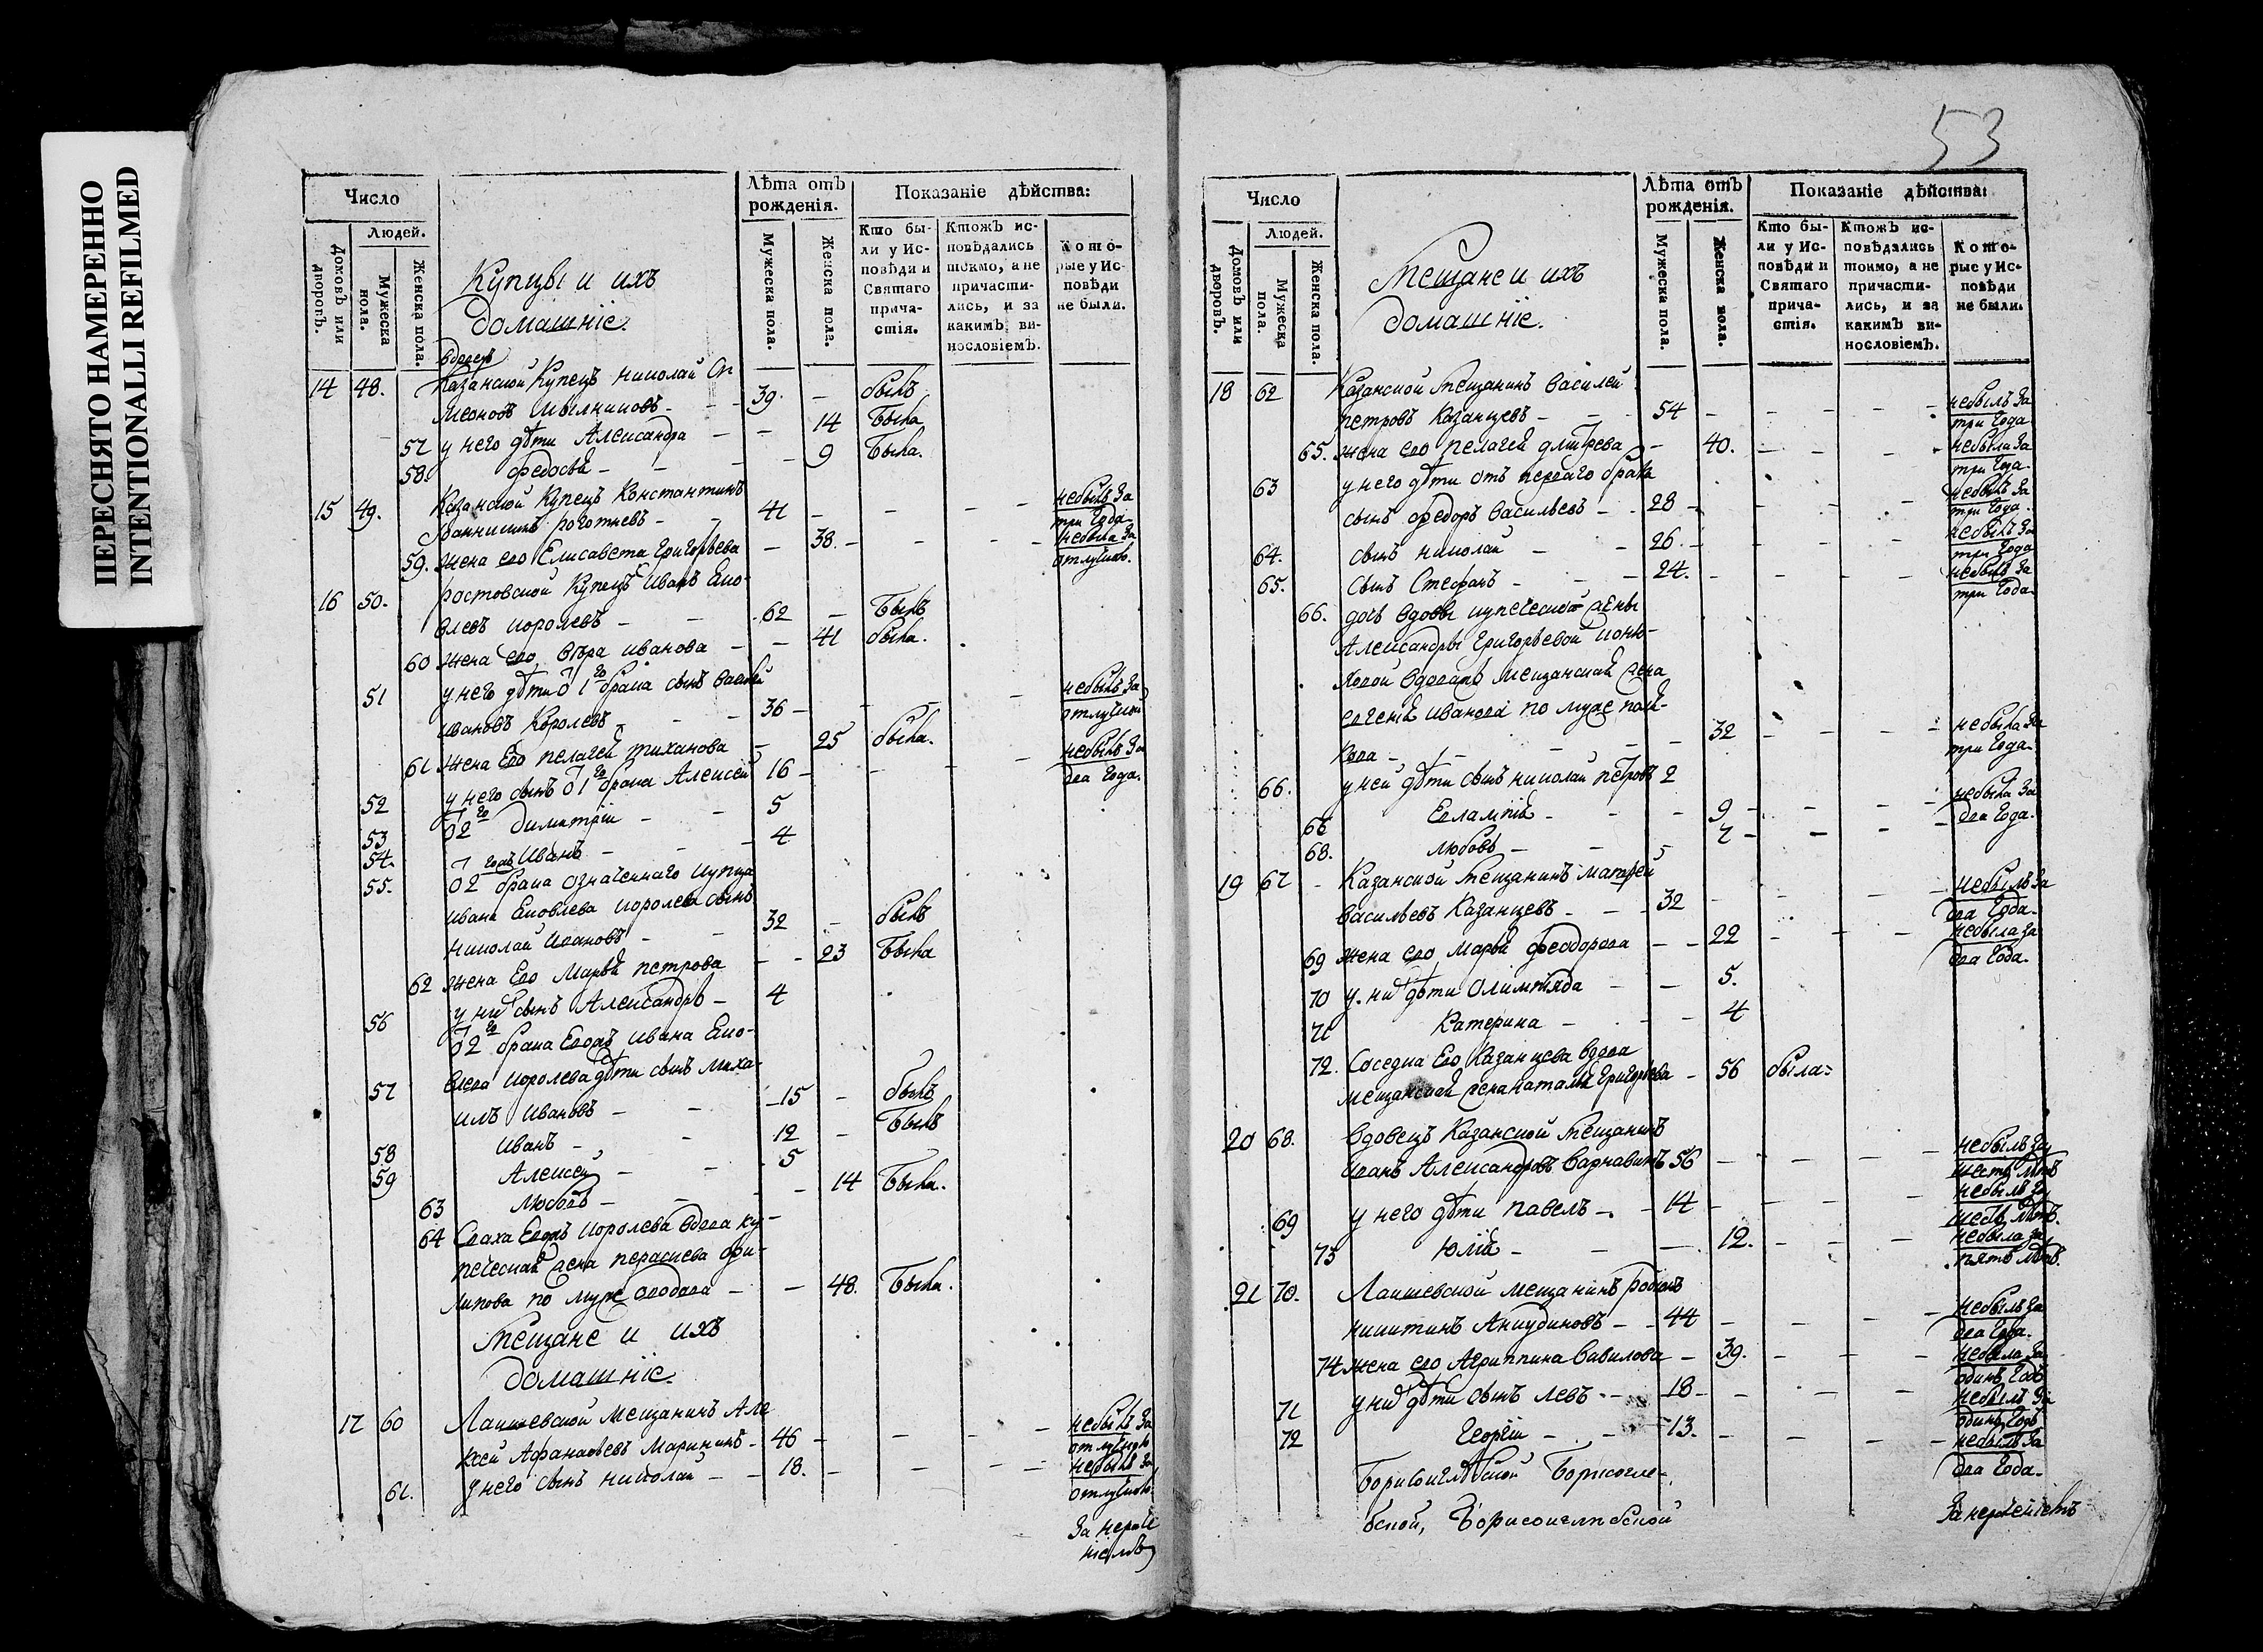 ПЕРЕСНЯТО НАМЕРЕННО
INTENTIONALLI REFILMED
Число
Людей.
Домовъ или дворовъ.
Мужеска пола.
Женска пола.
Купцы и ихъ
домашніе.
Лѣта отъ рожденія.
Мужеска пола.
Женска пола.
Показаніе дѣйства:
Кто бы-
ли у Ис-
повѣди и
Святаго
прича-
стія.
Ктожъ ис-
повѣдались
токмо, а не
причасти-
лись, и за
какимъ ви-
нословіемъ.
Кото-
рые у Ис-
повѣди
не были.
вдовецъ
14 48. Казанской Купецъ Николай
Мыльниковъ - 39. - былъ
57 у него дѣти Александра - - 14 была
58. Федосья - - - 9 была.
15 49. Казанской Купецъ Константинъ
- 41 - - - небылъ за три года
59. жена его Елисавета Григорьева - 38. - - - небыла за отлучкою.
16 50. Ростовской Купецъ Иванъ Яко-
влевъ Королевъ - - 62 - былъ
60 жена его Вѣра Иванова - - 41 была.
51 у него дѣти о 1го брака сынъ Василей
Ивановъ Королевъ - - 36 - - - небылъ за отлучкою
61 жена его Пелагея Тиханова - 25 была.
52 у него сынъ о 1го брака Алексей 16 - - - небылъ за два года.
53 о 2го Димитрій - - 5
54. Иванъ - - - 4
55. о 2го брака означеннаго купца
Ивана Яковлева Королева сынъ
Николай Ивановъ - - 32 - былъ
62 жена его Марья Петрова - - 23 была
56 у них сынъ Александръ - 4
о 2го брака Ивана Яко-
57 влева Королева дѣти сынъ Миха-
илъ Ивановъ - - 15 - былъ
58 Иванъ - - 12 - былъ
59 Алексей - - 5
63 Любовь - - - 14 была.
64 Сваха Королева вдова ку-
печеская жена Параскева Фи-
липова по мужѣ - - 48. была.
Мещане и ихъ
домашніе.
17 60 Лаишевской мещанинъ Але-
ксей Афанасьевъ Марининъ - 46 - - - небылъ за отлучкою
61. у него сынъ Николай - - 18. - - - небылъ за отлучкою.
53
Число
Людей.
Домовъ или дворовъ.
Мужеска пола.
Женска пола.
Мещане и ихъ
домашніе.
Лѣта отъ рожденія.
Мужеска пола.
Женска пола.
Показаніе дѣйства:
Кто бы-
ли у Ис-
повѣди и
Святаго
прича-
стія.
Ктожъ ис-
повѣдались
токмо, а не
причасти-
лись, и за
какимъ ви-
нословіемъ.
Кото-
рые у Ис-
повѣди
не были.
18 62 Казанской Мещанинъ Василей
Петровъ Казанцевъ - - 54 - - - небылъ за три года
65. жена его Пелагея Дмитрева - 40. - - - небыла за три года.
63 у него дѣти отъ перваго брака
сынъ Федоръ Васильевъ - - 28 - - небылъ за три года.
64. сынъ Николай - - 26. - - - небылъ за три года
65. сынъ Стефанъ - - - 24. - - - небылъ за три года
66. дочь вдовы купеческой жены
Александры Григорьевой
вдова мещанская жена
Евгенія Иванова по мужѣ
- - - 32 - - - небыла за три года.
66. у ней дѣти сынъ Николай Петровъ 2
Евлампія - - - 9 - - - небыла за два года.
68. Любовь - - 7 - - -
19 67 - Казанской Мещанинъ
Васильевъ Казанцевъ - - - 32 - - - небылъ за два года.
69 жена его Марья Феодорова - - 22 - - - небыла за два года.
70 у них дѣти Олимпіада - - 5.
71 Катерина - - - 4
72. Соседка его Казанцева вдова
мещанская жена Наталья Григорьева - 56 была
20 68. Вдовецъ Казанской Мещанинъ
Иванъ Александровъ 56 - - - небылъ за шесть лѣтъ
69 у него дѣти Павелъ - - 14 - - - небылъ за шесть лѣтъ.
73 Юлія - - - 12. - - - небыла за пять лѣтъ.
21 70. Лаишевской мещанинъ Родіонъ
Никитинъ Анкудиновъ - - 44 - - - небылъ за два года.
74 жена его Агриппина Вавилова - 39. - - - небыла за одинъ годъ
71 у них дѣти сынъ Левъ - - 18 - - - небылъ за одинъ годъ
72 Георгій - - - 13. - - - небылъ за два года.
Борисоглѣбской Борисогле-
бской, Борисоглебской